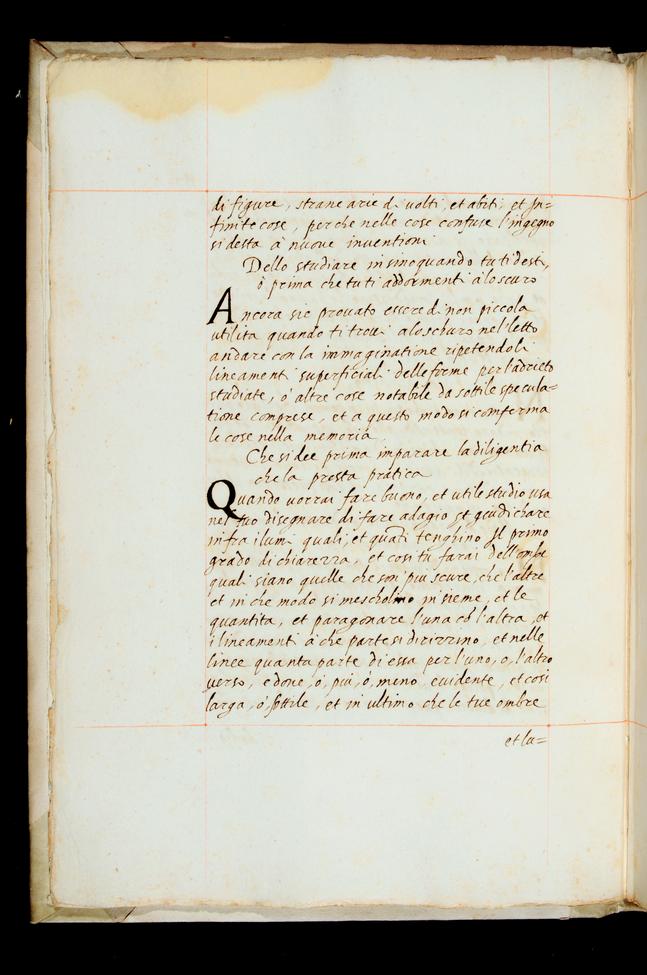 di figure, strane arie di volti, et abiti, et in=
finite cose, perche nelle cose confuse l'ingegno
si desta à nuove inventioni
Dello studiare insino quando tu ti desti,
ò prima che tu ti addormenti à lo scuro
Ancora sié provato essere di non piccola
utilita quando ti trovi alo schuro nel letto
andare con la immaginatione ripetendo li
lineamenti superficiali delle forme per l'adrieto
studiate, ò altre cose notabile da sottile specula=
tione comprese, et a questo modo si comferma
le cose nella memoria
Che si dee prima imparare la diligentia
che la presta pratica
Quando vorrai fare buono, et utile studio usa
nel tuo disegnare di fare adagio et giudichare
infra i lumi quali, et quāti tenghino il primo
grado di chiarezza, et cosi tu farai dell'ombre
quali siano quelle che son piu scure, che l'altre
et in che modo si mescholino insieme, et le
quantita, et paragonare l'una cō l'altra, et
i lineamenti à che parte si dirizzino, et nelle
linee quanta parte di essa per l'uno, o, l'altro
verso, e dove, ò, piu, ò, meno evidente, et cosi
larga, ò, sottile, et in ultimo che le tue ombre
et lu=